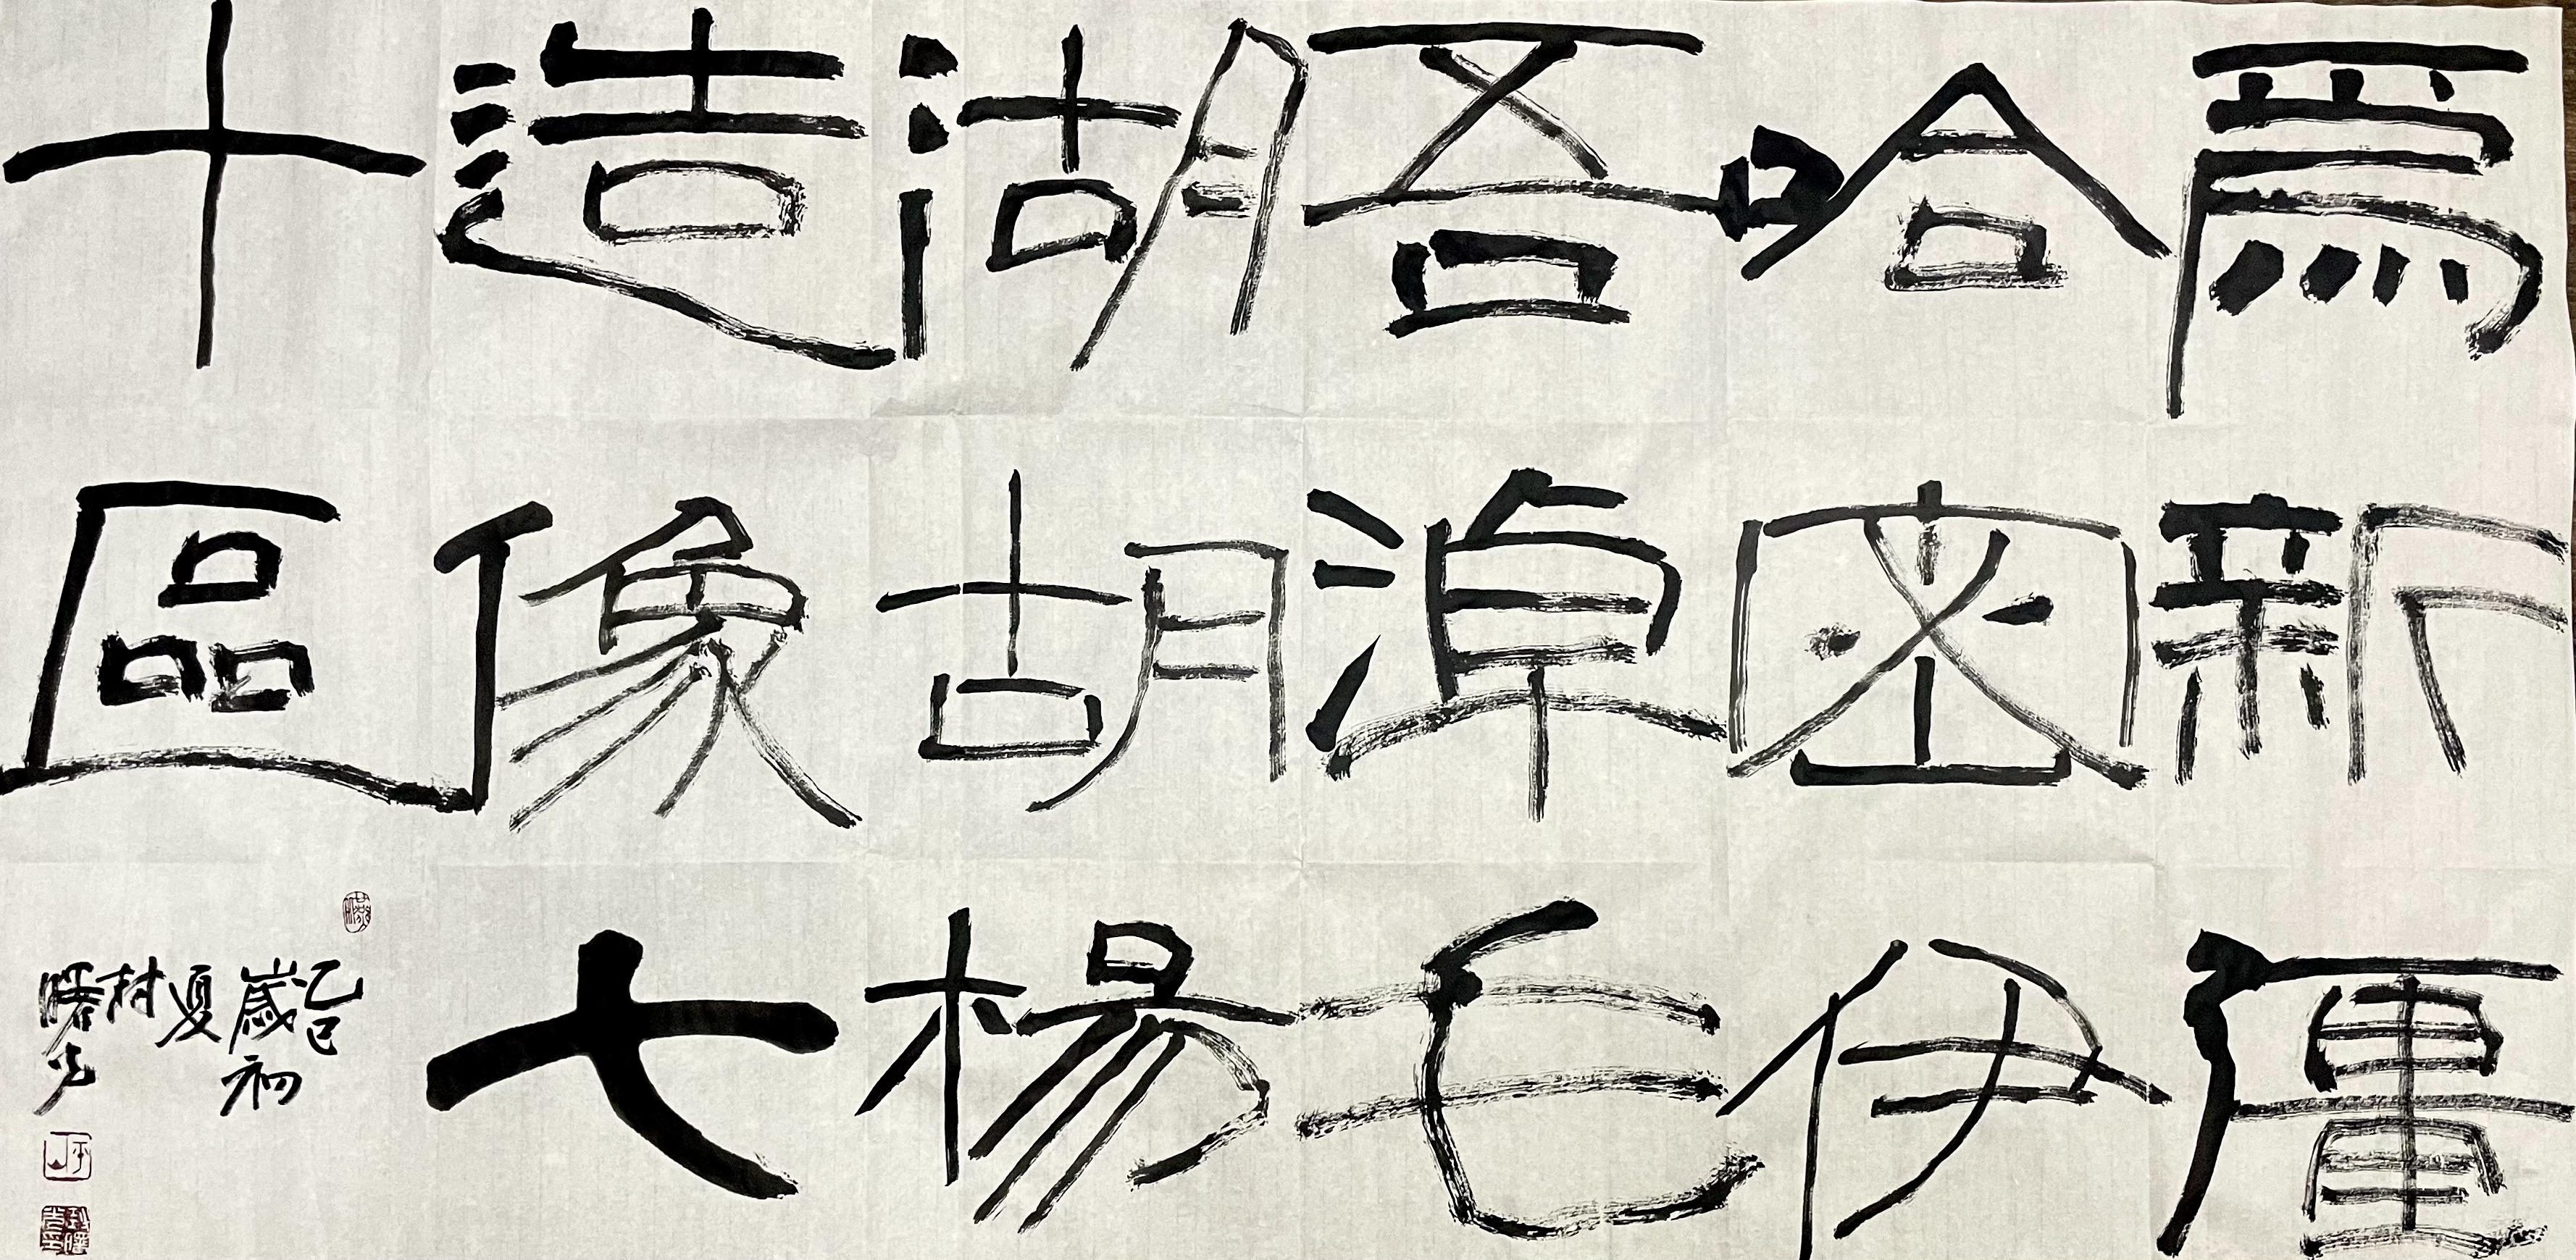 爲新疆
哈密伊
吾淖毛
湖胡楊
造像七
十區
乙巳
歲初
夏
村
曙光